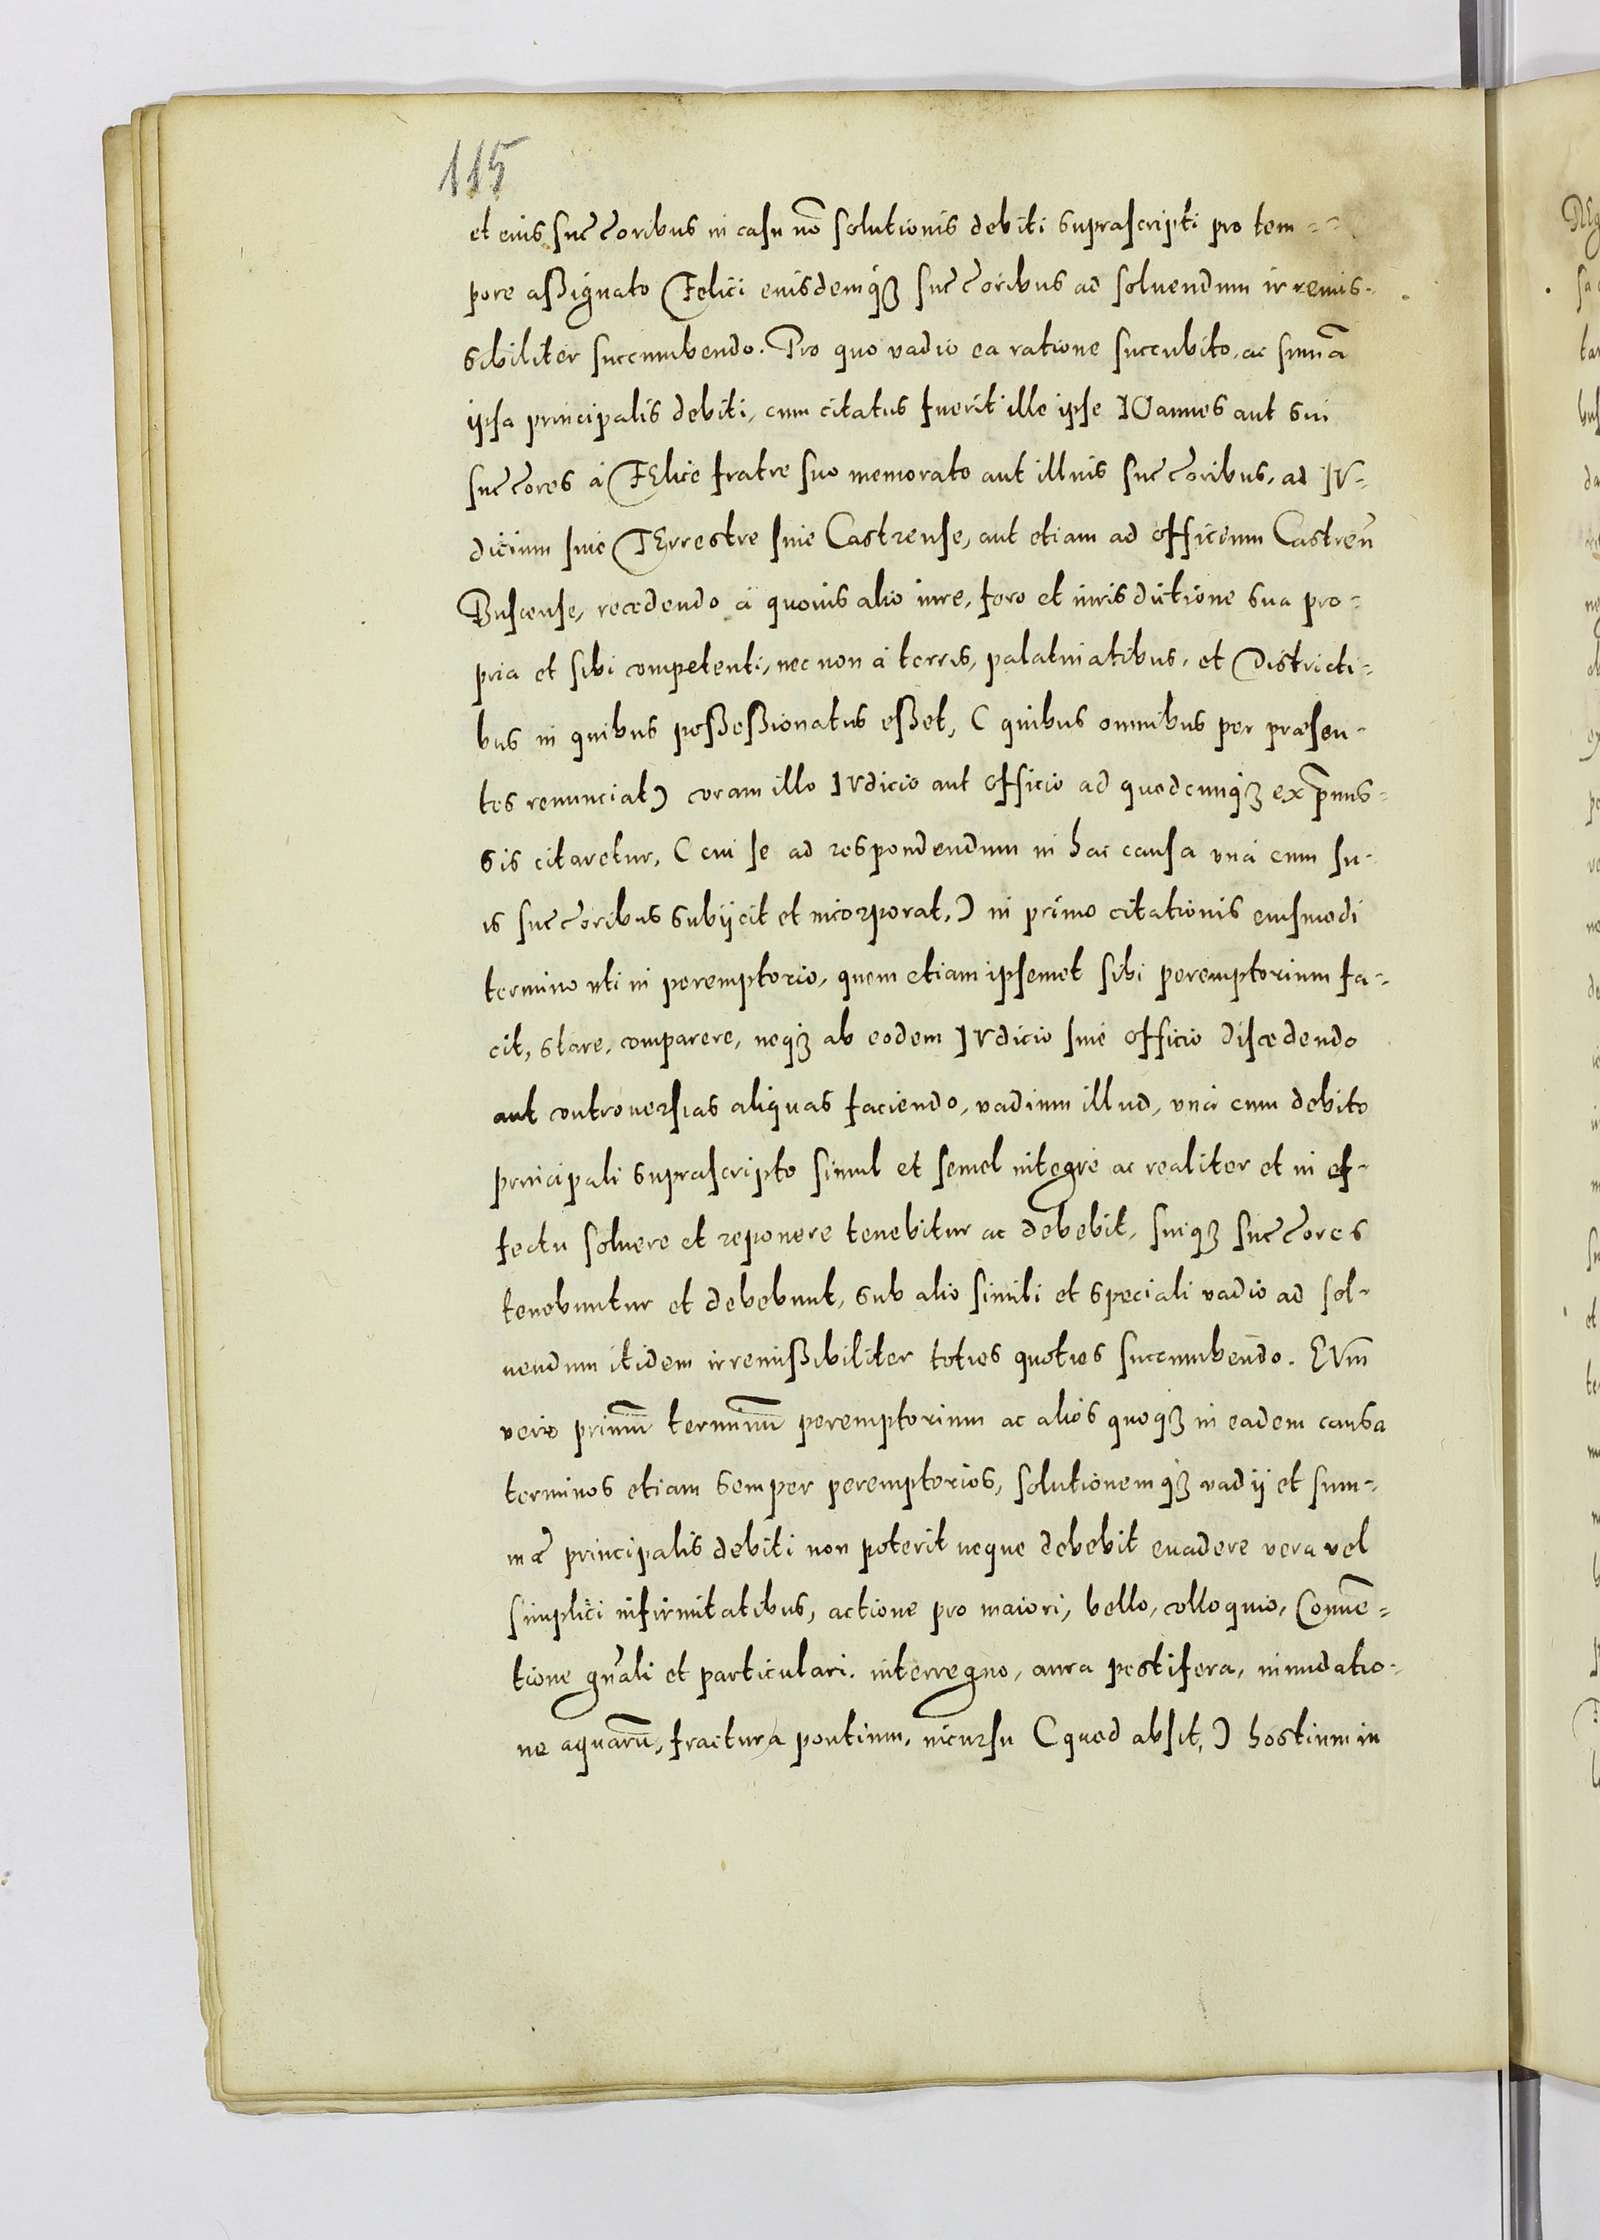 115
et eius succ̄oribus in casu nō solutionis debiti suprascripti pro tem=
pore aßignato Felici eiusdemq; succ̄oribus ad soluendum irremis-
sibiliter succumbendo. Pro quo vadio ea ratione succubito, ac sum̄a
ipsa principalis debiti, cum citatus fuerit ille ipse IOannes aut sui
succ̄ores à FElice fratre suo memorato aut illius succ̄oribus, ad IV-
dicium siue TErrestre siue Castrense, aut etiam ad officium Castren̄
Buscense, recedendo à quouis alio iure, foro et iurisdictione sua pro-
pria et sibi competenti, nec non à terris, palatinatibus, et Districti-
bus in quibus poßeßionatus eßet, (quibus omnibus per præsen-
tes renunciat) coram illo IVdicio aut officio ad quodcunq; ex p̄mis-
sis citaretur, (cui se ad respondendum in hac causa vnà cum su-
is succ̄oribus subijcit et incorporat,) in primo citationis eiusmodi
termino uti in peremptorio, quem etiam ipsemet sibi peremptorium fa-
cit, stare, comparere, neq; ab eodem IVdicio siue officio discedendo
aut controuersias aliquas faciendo, vadium illud, vnà cum debito
principali suprascripto simul et semel integrè ac realiter et in ef-
fectu soluere et reponere tenebitur ac debebit, suiq; succ̄ores
tenebuntur et debebunt, sub alio simili et speciali vadio ad sol-
uendum itidem irremißibiliter toties quoties succumbendo. EVm
verò primū terminū peremptorium ac aliós quoq; in eadem causa
terminos etiam semper peremptorios, solutionemq; vadij et sum-
mæ principalis debiti non poterit neque debebit euadere vera vel
simplici infirmitatibus, actione pro maiori, bello, colloquio, Conuē-
tione gn̄ali et particulari. interregno, aura pestifera, inundatio-
ne aquarū, fractura pontium, incursu (quod absit,) hostium in